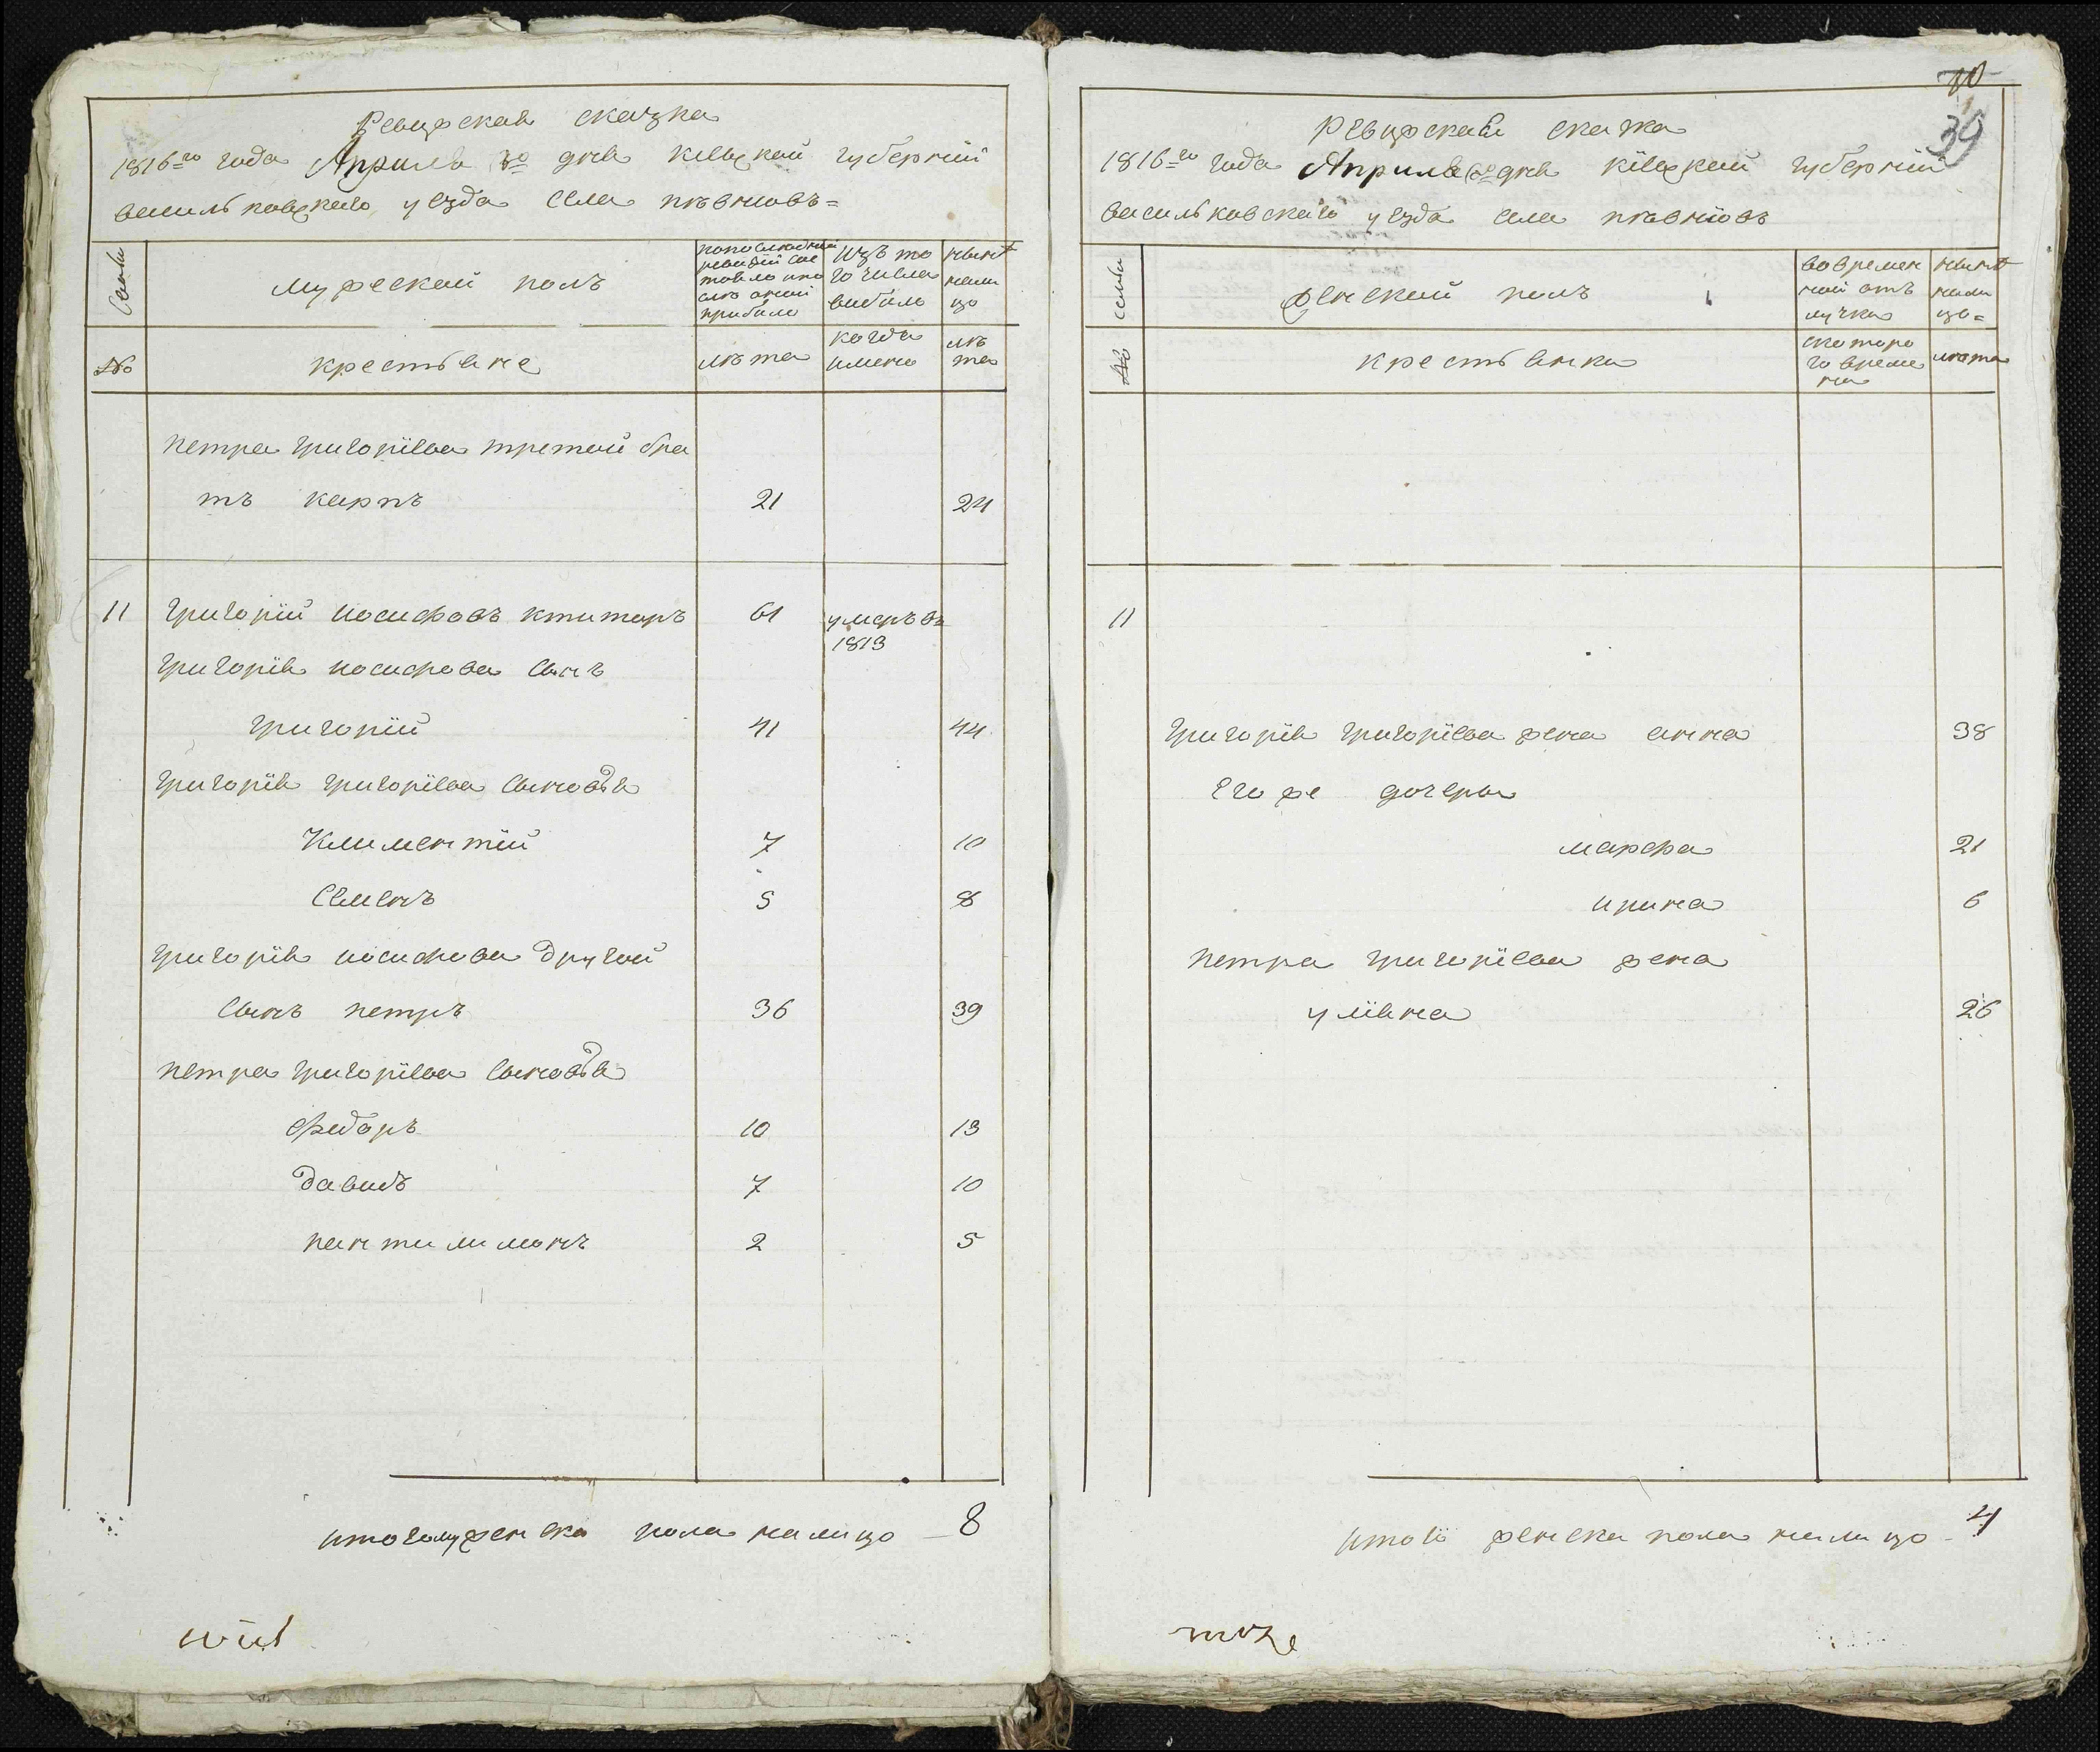 Ревизская сказка
1816=го года Апреля дня Киевской губернии
васильковского уезда села пъвновъ=
семьи
мужеской полъ
по последней ревизии состояло или после оной прибыло
изъ того числа выбыло
ныне на лицо
№
крестьяне
лѣта
когда имено
лѣта
петра григорїева третей бра
тъ карпъ 21 24
11 григорїй иосифовъ ктиторъ 61 умеръ въ 1813
григорїя иосифова сынъ
григорїй 41 44
григорїя григорїева сыновя
климентїй 7 10
семенъ 5 8
григорїя иосифова другой
сынъ петръ 36 39
петра григорїева сыновя
федоръ 10 13
давидъ 7 10
пантилимонъ 2 5
итого мужеска пола налицо – 8
40
39
Ревизская скаска
1816=го года Апреля дня кїевской губернїи
васильковскаго уезда села пъвнїовъ
семьи
женской полъ
во временной отлучке
ныне налицо=
№
крестьянка
с которого времена
лѣта
11
григорїя григорїева жена анна 38
его же дочеры
марфа 21
ирина 6
петра григорїева жена
улїяна 26
итого женска пола налицо – 4
може